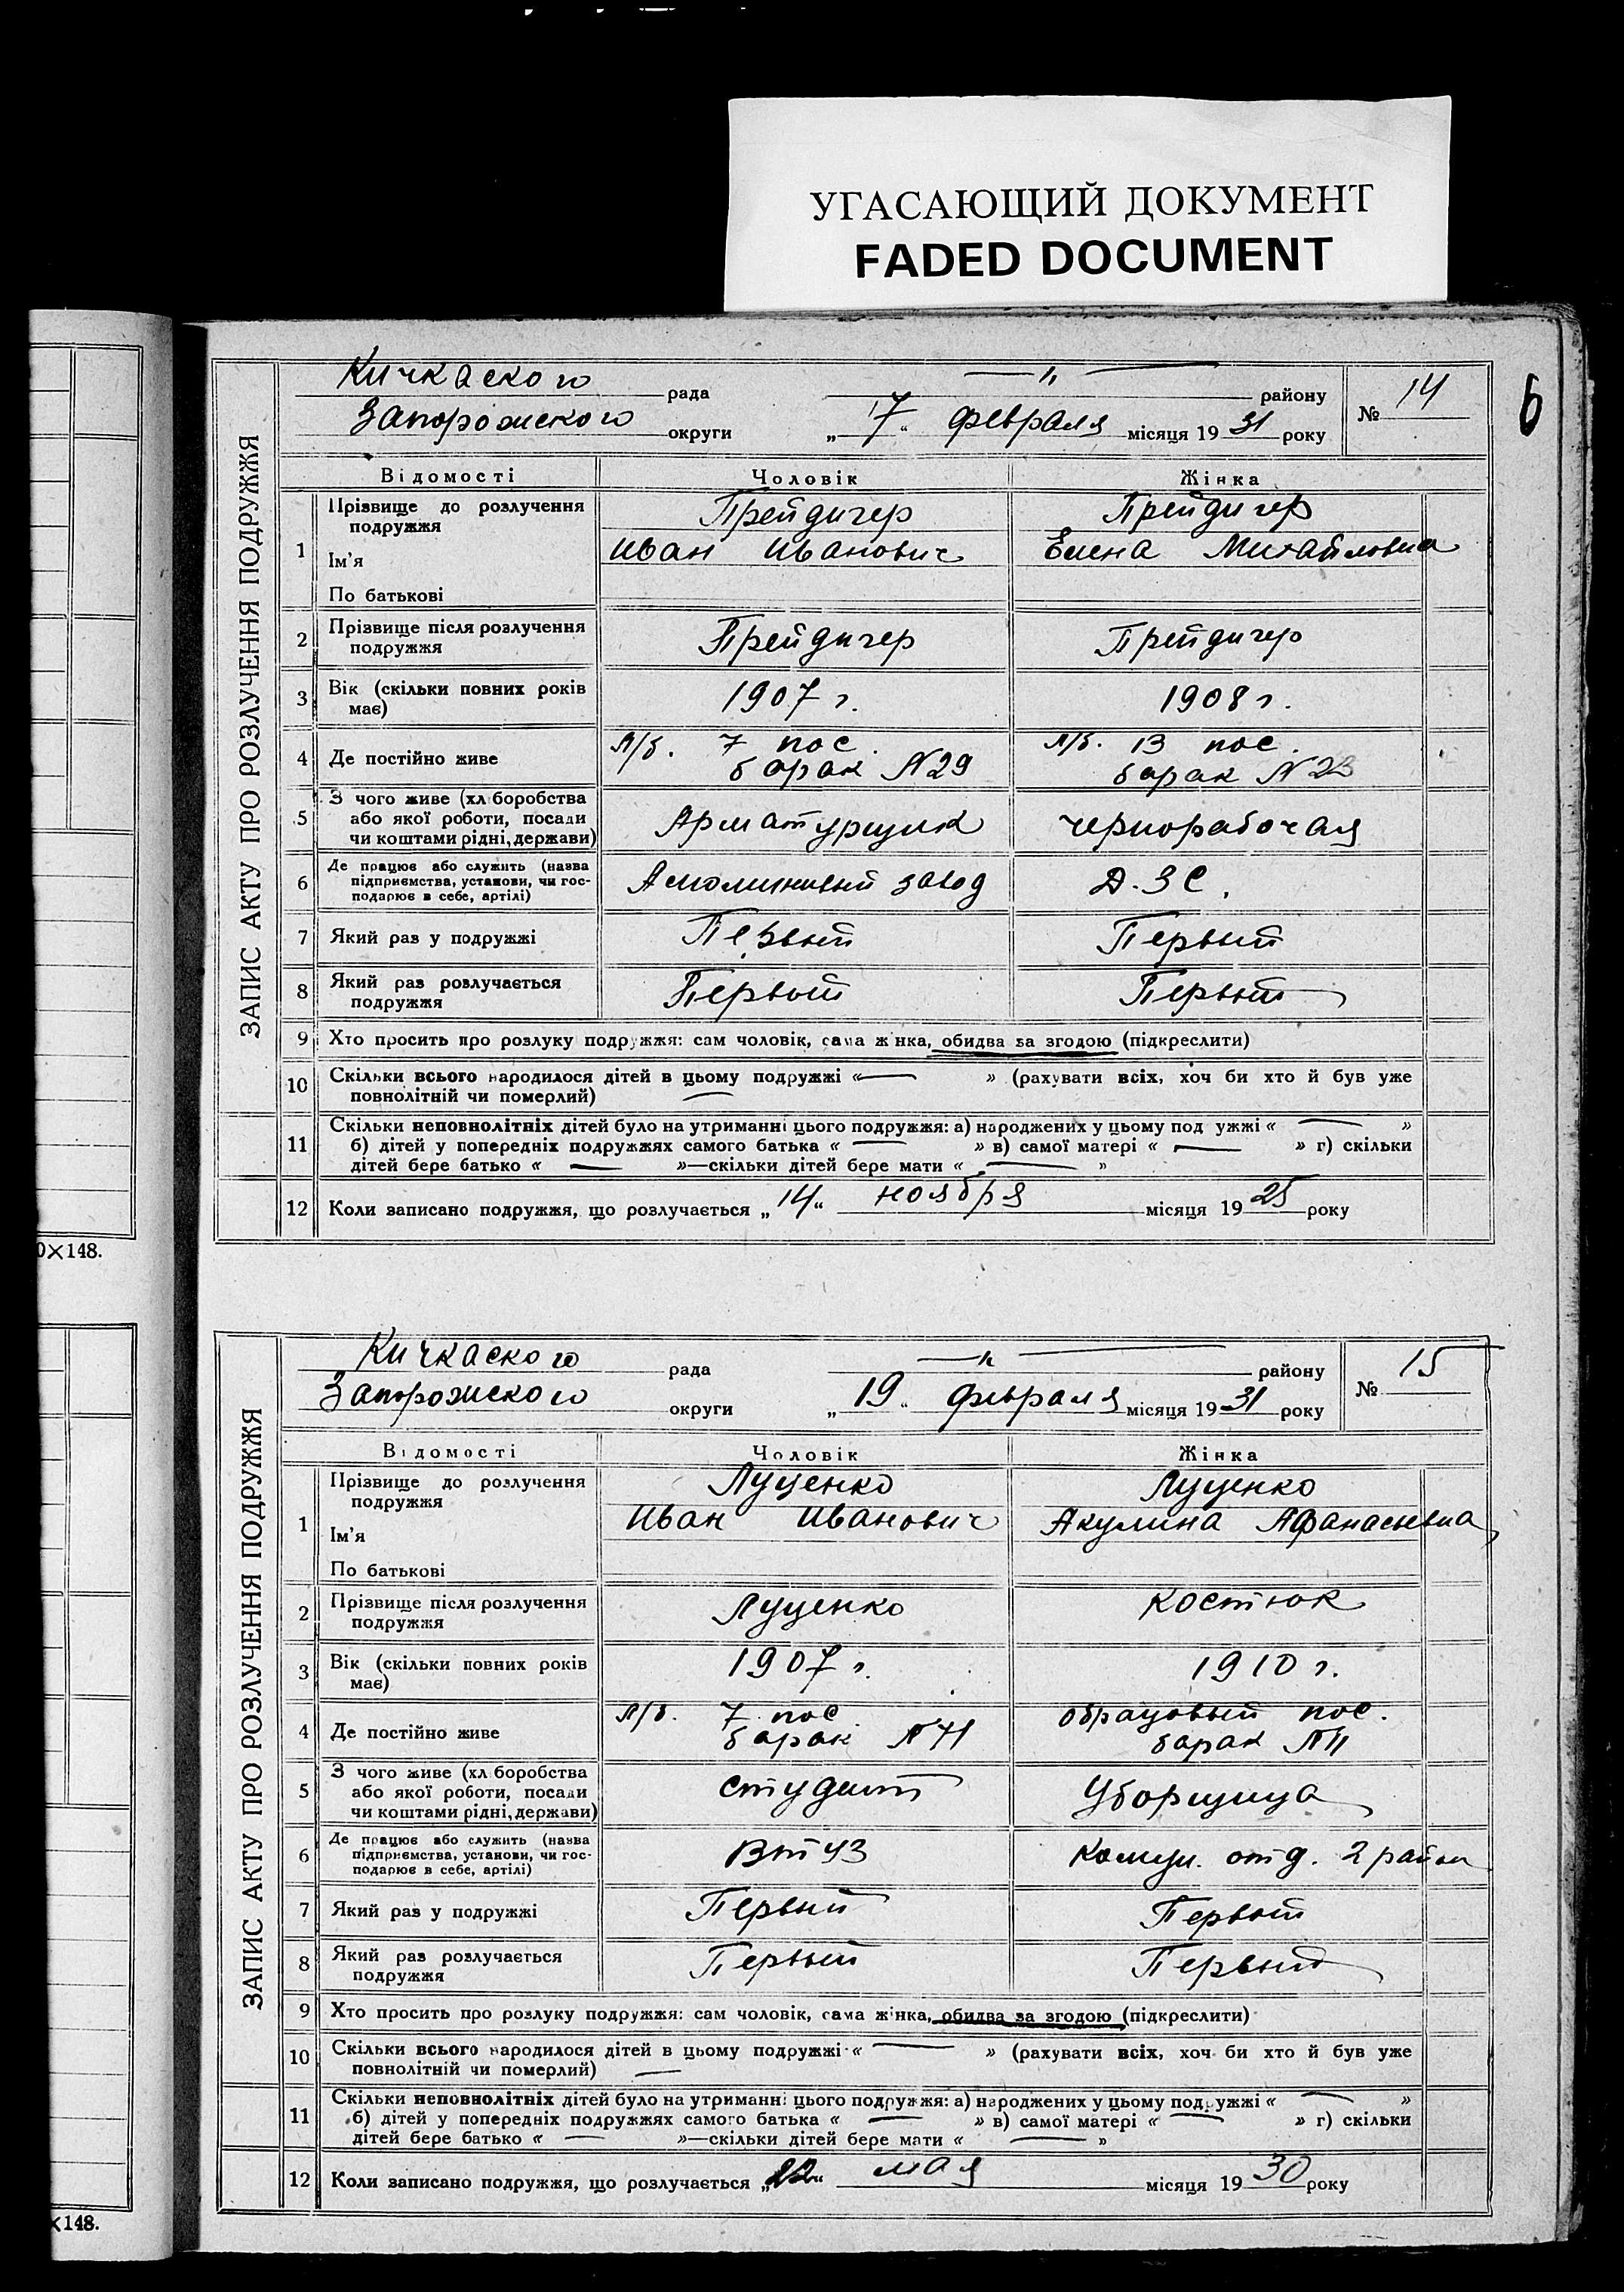 УГАСАЮЩИЙ ДОКУМЕНТ
FADED DOCUMENT
6
0×148.
×148.
ЗАПИС АКТУ ПРО РОЗЛУЧЕННЯ ПОДРУЖЖЯ
Кичкаского рада — " — району
Запорожского округи „17“ февраля місяця 1931 року
№ 14
Відомості Чоловік Жінка
1 Прізвище до розлучення подружжя Прейдичер Прейдичер
Ім'я Иван Иванович Елена Михайловна
По батькові
2 Прізвище після розлучення подружжя Прейдичер Прейдичер
3 Вік (скільки повних років має) 1907 г. 1908 г.
4 Де постійно живе л/б. 7 пос. барак №29 л/б. 13 пос. барак №23
5 З чого живе (хліборобства або якої роботи, посади чи коштами рідні, держави) Арматурщик чернорабочая
6 Де працює або служить (назва підприємства, установи, чи господарює в себе, артілі) Алюминивый завод Д.З С.
7 Який раз у подружжі Первый Первый
8 Який раз розлучається подружжя Первый Первый
9 Хто просить про розлуку подружжя: сам чоловік, сама жінка, обидва за згодою (підкреслити)
10 Скільки всього народилося дітей в цьому подружжі «—» (рахувати всіх, хоч би хто й був уже
повнолітній чи померлий) —
11 Скільки неповнолітніх дітей було на утриманні цього подружжя: а) народжених у цьому подружжі «—»
б) дітей у попередніх подружжях самого батька «—» в) самої матері «—» г) скільки
дітей бере батько «—»—скільки дітей бере мати «—»
12 Коли записано подружжя, що розлучається „14“ ноября місяця 1925 року
ЗАПИС АКТУ ПРО РОЗЛУЧЕННЯ ПОДРУЖЖЯ
Кичкаского рада — " — району
Запорожского округи „19“ февраля місяця 1931 року
№ 15
Відомості Чоловік Жінка
1 Прізвище до розлучення подружжя Луценко Луценко
Ім'я Иван Иванович Акулина Афанасьевна
По батькові
2 Прізвище після розлучення подружжя Луценко Костюк
3 Вік (скільки повних років має) 1907 г. 1910 г.
4 Де постійно живе л/б. 7 пос. барак образцовый пос. барак №11
5 З чого живе (хліборобства або якої роботи, посади чи коштами рідні, держави) студент Уборщица
6 Де працює або служить (назва підприємства, установи, чи господарює в себе, артілі) Втуз Комун. отд. 2 район
7 Який раз у подружжі Первый Первый
8 Який раз розлучається подружжя Первый Первый
9 Хто просить про розлуку подружжя: сам чоловік, сама жінка, обидва за згодою (підкреслити)
10 Скільки всього народилося дітей в цьому подружжі «—» (рахувати всіх, хоч би хто й був уже
повнолітній чи померлий) —
11 Скільки неповнолітніх дітей було на утриманні цього подружжя: а) народжених у цьому подружжі «—»
б) дітей у попередніх подружжях самого батька «—» в) самої матері «—» г) скільки
дітей бере батько «—»—скільки дітей бере мати «—»
12 Коли записано подружжя, що розлучається мая місяця 1930 року